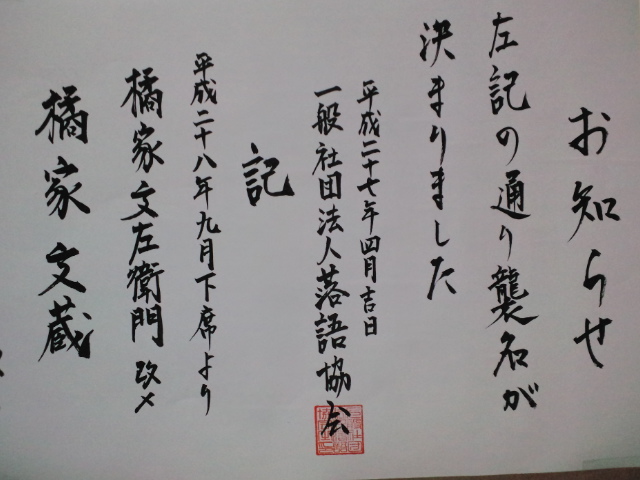 お知らせ
左記の通り襲名が
決まりました
平成二十七年四月吉日
一般社団法人落語協会
記
平成二十八年九月下席より
橘家文左衛門改メ
橘家文蔵